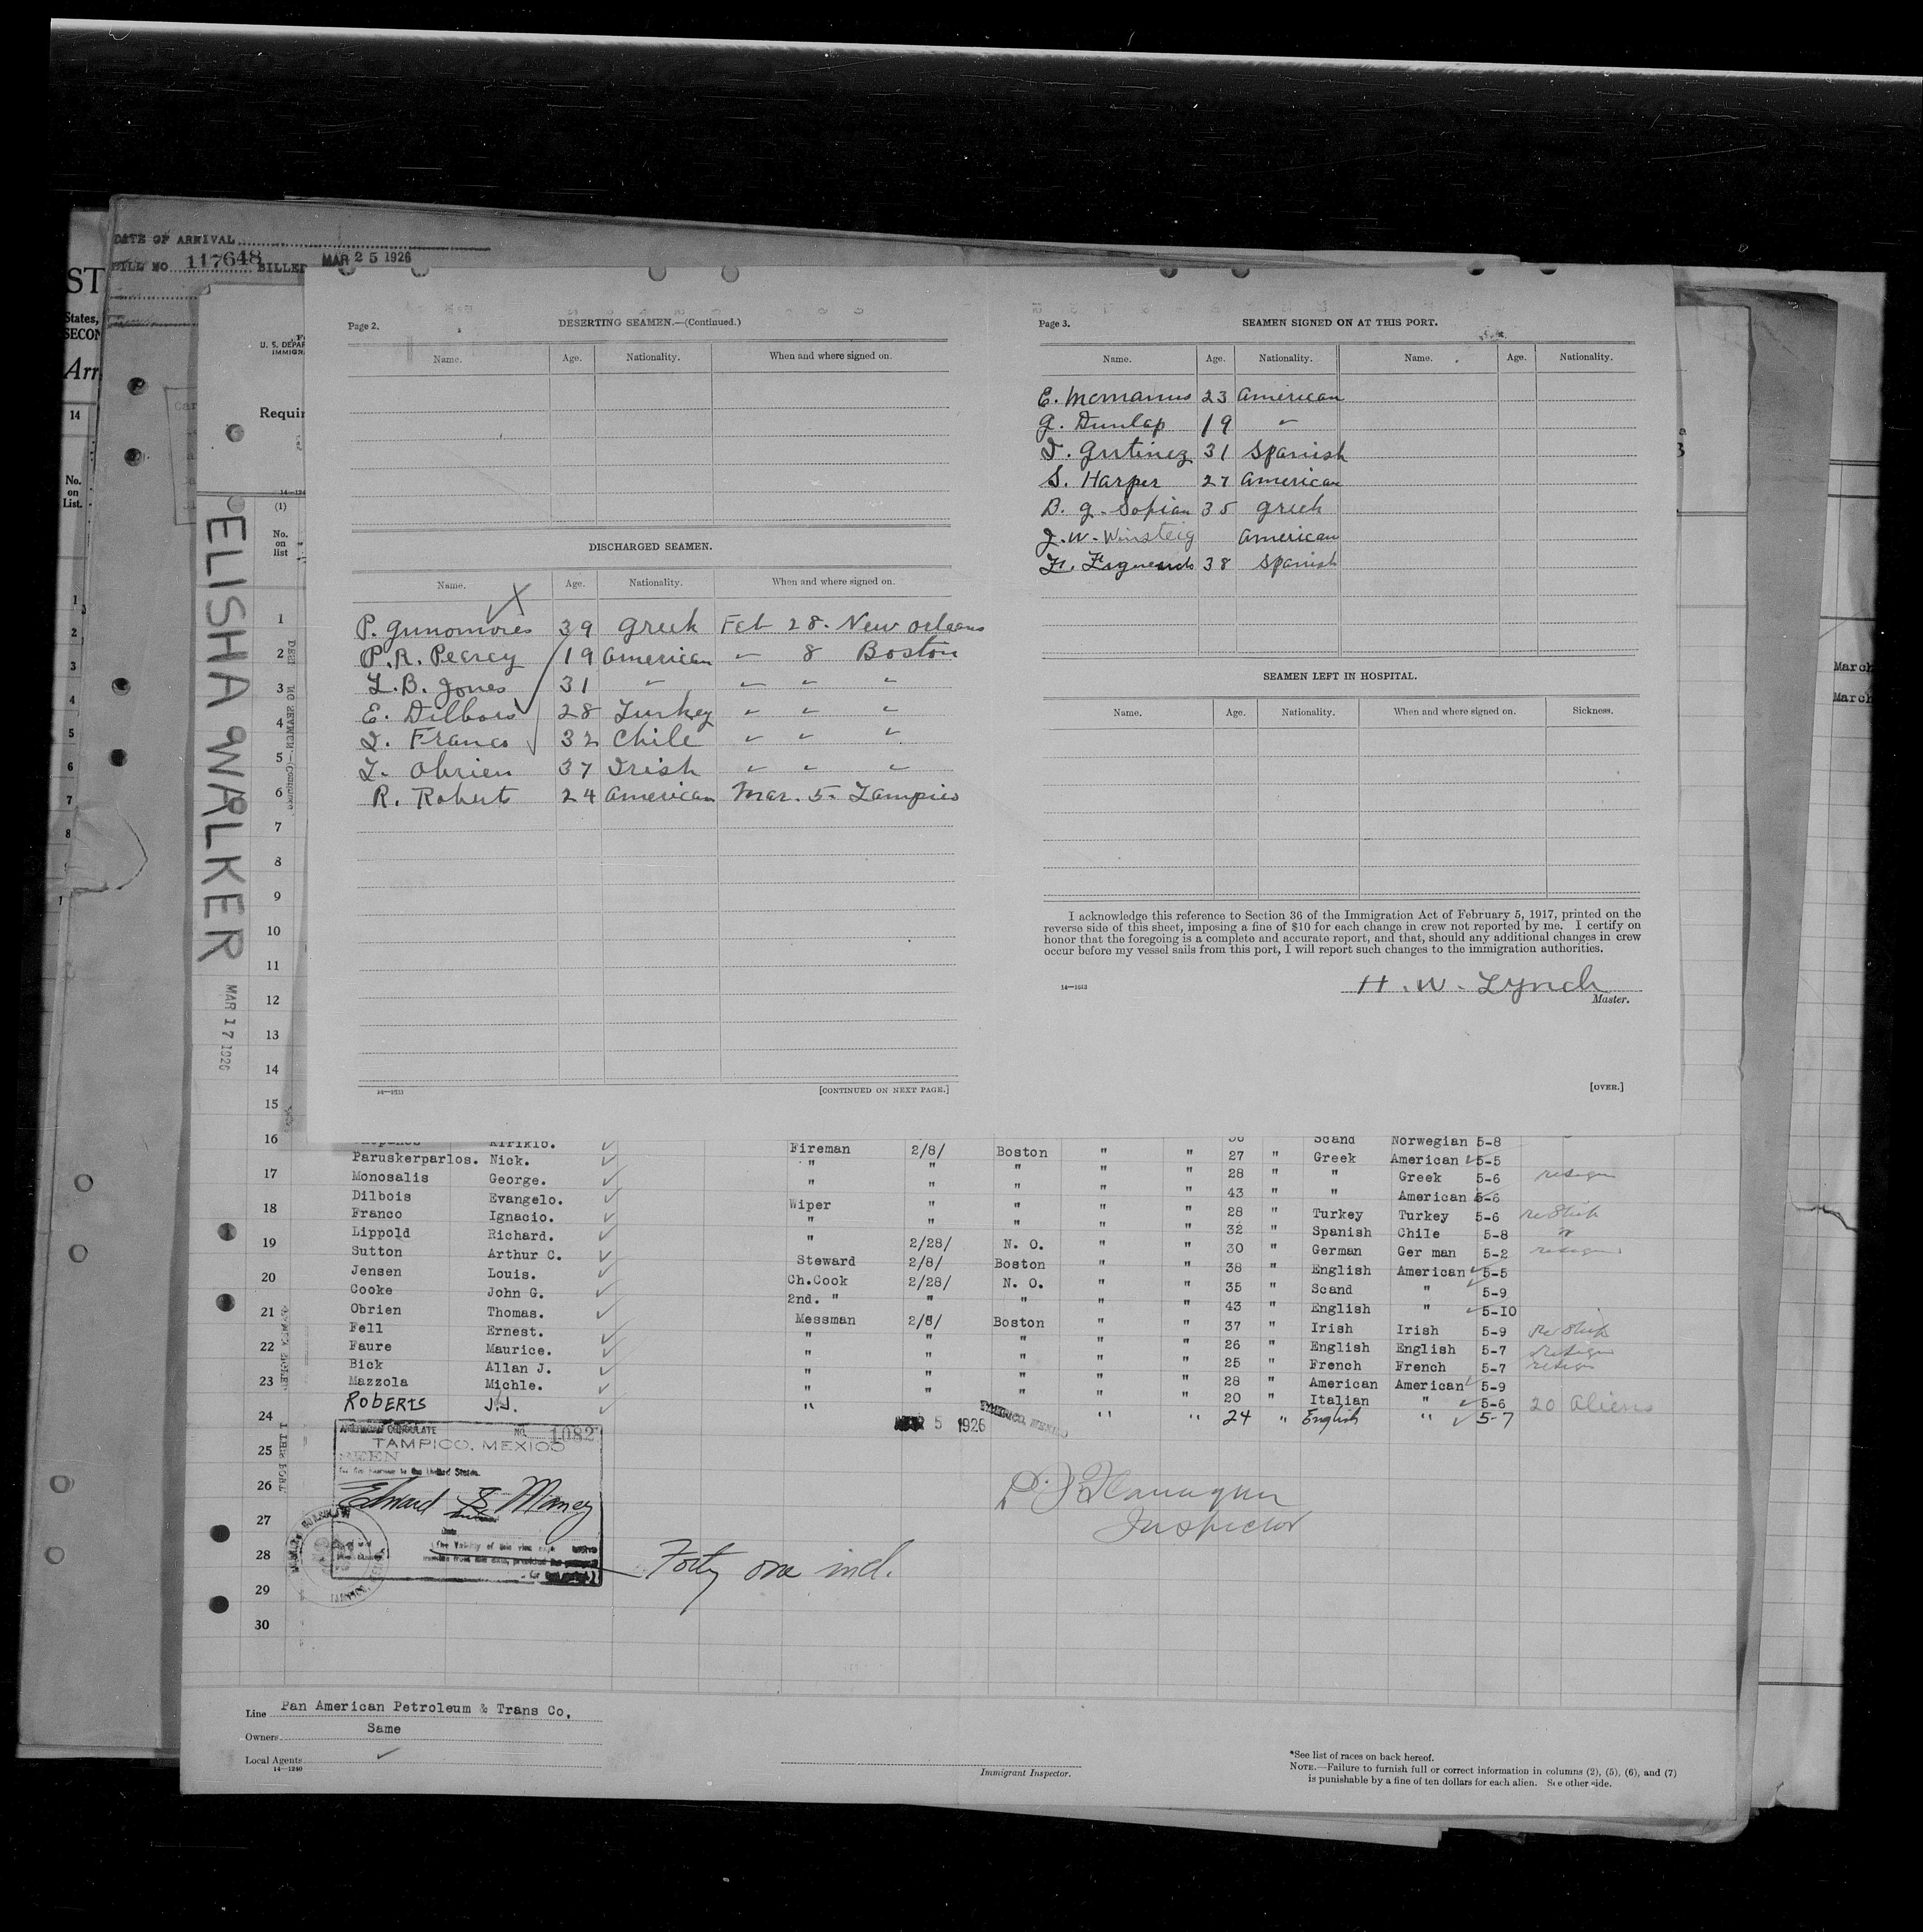 DATE OF ARRIVAL
BILL NO 117648 BILLED MAR 25 1926
ST
States,
SECON
Arr
14
No.
on
List.
U. S. DEPAR
IMMIGRA
Requir
(1)
No.
on
list
ELISHA WALKER
MAR 17 1926
Page 2.
DESERTING SEAMEN.—(Continued.)
Name. Age. Nationality. When and where signed on.
DISCHARGED SEAMEN.
Name. Age. Nationality. When and where signed on.
P. 39 Greek Feb 28. New Orleans
P.R. Pearcy 19 American " 8 Boston
L.B. Jones 31 " " " "
E. Dilbois 28 Turkey " " "
I. Franco 32 Chile " " "
T. Obrien 37 Irish " " "
R. Roberts 24 American Mar. 5. Tampico
14—1233
[CONTINUED ON NEXT PAGE.]
Page 3.
SEAMEN SIGNED ON AT THIS PORT.
Name. Age. Nationality. Name. Age. Nationality.
E. McManus 23 American
G. Dunlap 19 "
Gutinez 31 Spanish
S. Harper 27 American
G. Sofian 35 Greek
J. W. Winsteig American
38 Spanish
SEAMEN LEFT IN HOSPITAL.
Name. Age. Nationality. When and where signed on. Sickness.
I acknowledge this reference to Section 36 of the Immigration Act of February 5, 1917, printed on the
reverse side of this sheet, imposing a fine of $10 for each change in crew not reported by me. I certify on
honor that the foregoing is a complete and accurate report, and that, should any additional changes in crew
occur before my vessel sails from this port, I will report such changes to the immigration authorities.
H. W. Lynch
Master.
[OVER.]
March
March
1
2
3
4
5
6
7
8
9
10
11
12
13
14
15
16
17
18
19
20
21
22
23
24
25
26
27
28
29
30
Scand Norwegian 5-8
Paruskerparlos. Nick. Fireman 2/8/ Boston " " 27 " Greek American 5-5
Monosalis George. " " " " " 28 " " Greek 5-6 resign
Evangelo. " " " " " 43 " " American 5-6
Dilbois Wiper " " " " 28 " Turkey Turkey 5-6 reship
Franco Ignacio. " " " " " 32 " Spanish Chile 5-8 "
Lippold Richard. " 2/28/ N. O. " " 30 " German Ger man 5-2 resign
Sutton Arthur C. Steward 2/8/ Boston " " 38 " English American 5-5
Jensen Louis. Ch.Cook 2/28/ N. O. " " 35 " Scand " 5-9
Cooke John G. 2nd. " " " " " 43 " English " 5-10
Obrien Thomas. Messman 2/8/ Boston " " 37 " Irish Irish 5-9 Reship
Fell Ernest. " " " " " 26 " English English 5-7 resign
Faure Maurice. " " " " " 25 " French French 5-7 resign
Bick Allan J. " " " " " 28 " American American 5-9
Mazzola Michle. " " " " " 20 " Italian " 5-6 20 Aliens
ROBERTS J.J. " 5 1926 TAMPICO, MEXICO " " 24 " English " 5-7
AMERICAN CONSULATE NO. 1082
TAMPICO, MEXICO
SEEN
Edward S Maney
Forty one incl.
P. J. Flanagan
Inspector
Line Pan American Petroleum & Trans Co.
Owners Same
Local Agents
14—1240
Immigrant Inspector.
*See list of races on back hereof.
NOTE.—Failure to furnish full or correct information in columns (2), (5), (6), and (7)
is punishable by a fine of ten dollars for each alien. See other side.